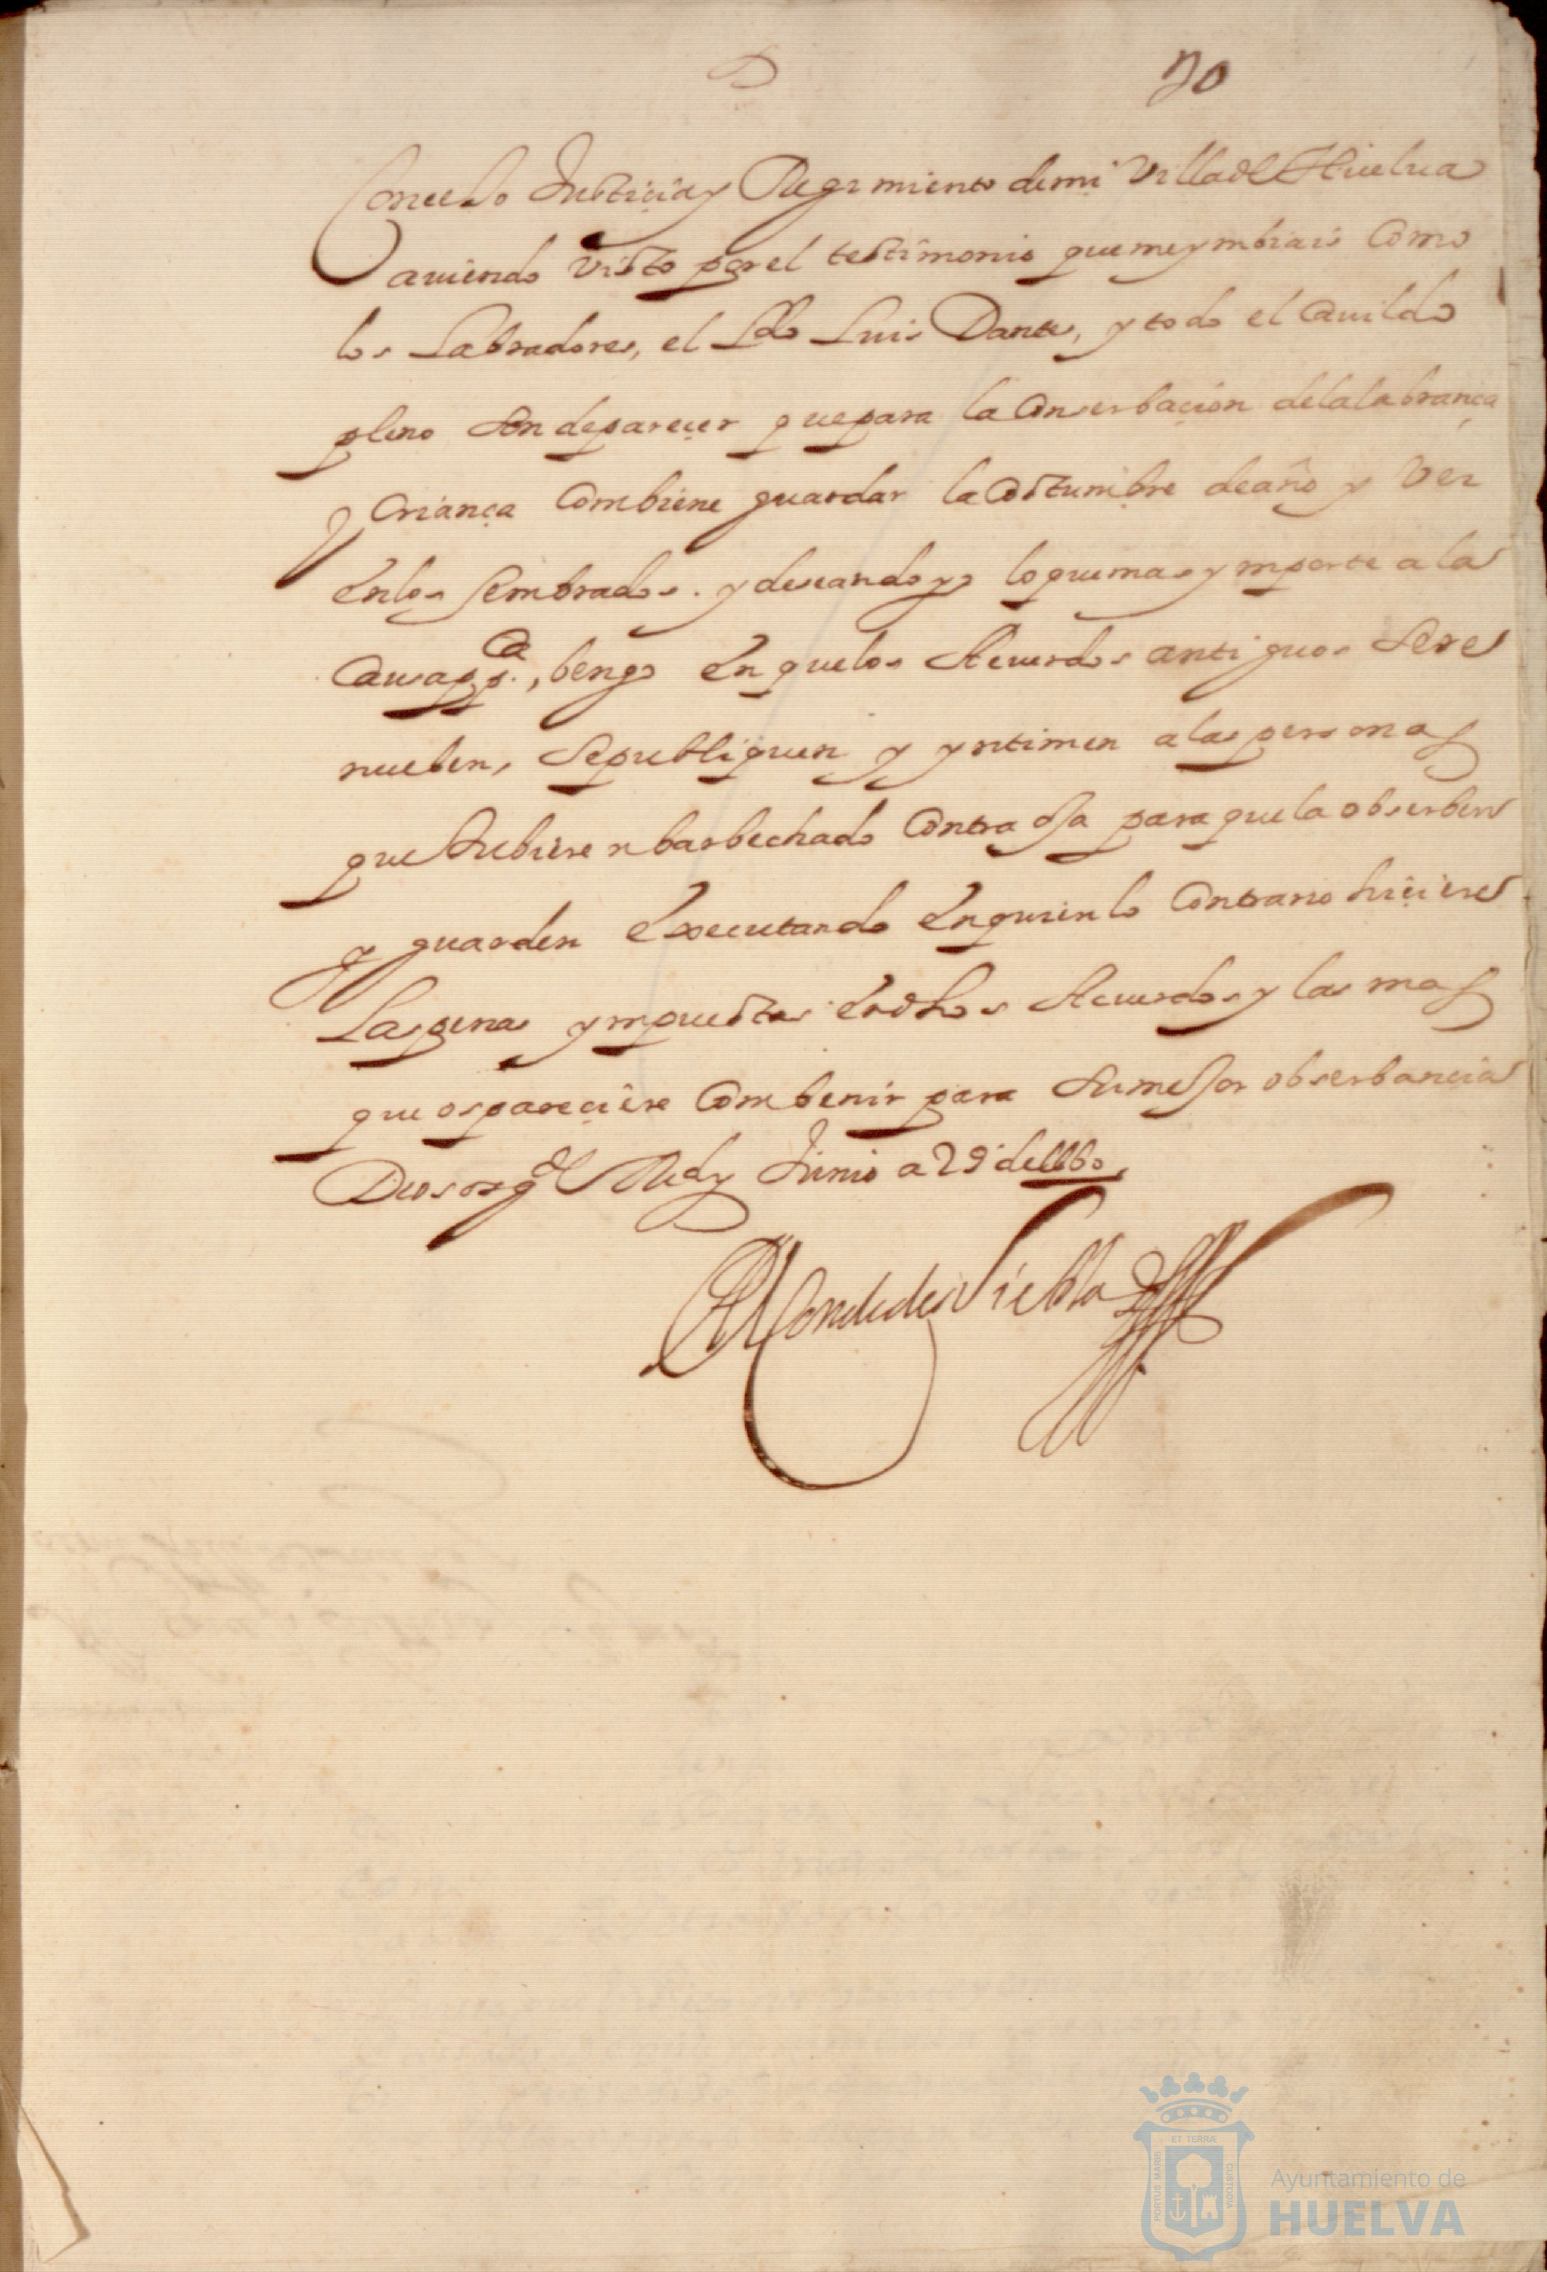 70
Concejo Justicia y Regimiento de mi Villa de Huelua
auiendo visto por el testimonio que me ymbiais como
los Labradores, el Ldo Luis Dante, y todo el Cauildo
pleno son de pareçer que para la Conserbaçion de la labrança
y Criança Combiene guardar la Costumbre de año y Vez
en los sembrados. y deseando yo lo que mas ymporte a la
Causa ppca, bengo en que los Acuerdos antiguos se re
nueben, se publiquen y yntimen a las personas
que hubieren barbechado Contra oja para que la obserben
y guarden executando en quien lo Contrario hiçiere
Las penas ympuestas en dhos Acuerdos y las mas
que os pareçiere Combenir para su mejor obserbançia
Dios os gde Md y Junio a 29 de
El Conde de Niebla
PORTUS MARIS
ET TERRÆ
CUSTODIA
Ayuntamiento de
HUELVA